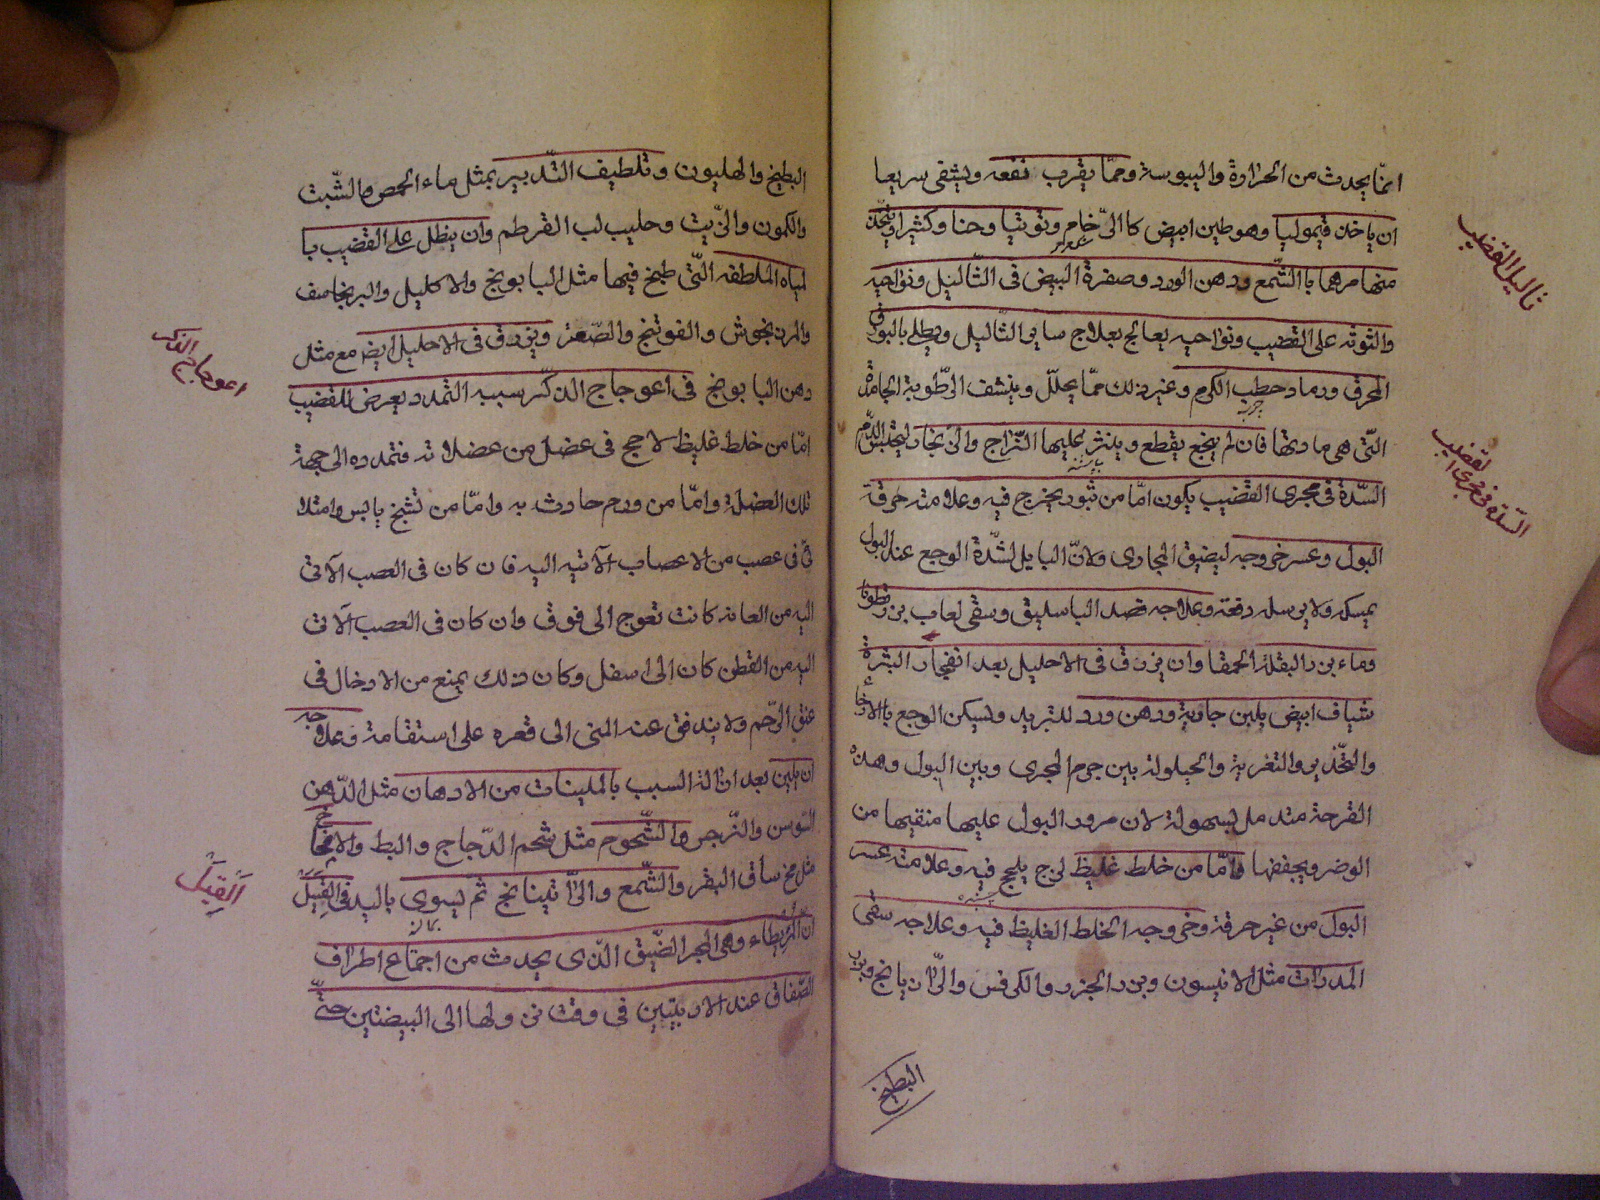 انما يحدث من الحرارة واليبوسة ومما يقرب نفعه ويشفى سريعا
ان ياخذ قيموليا وهو طين ابيض كالرخام وتوتيا وحنا وكثيرا ويتخذ
منها مرهما باالشمع ودهن الورد وصفرة البيض فى الثاليل ونواحيه
والتوته على القضيب ونواحيه يعالج بعلاج ساير الثاليل ويطلى بالبورق
المحرق ورماد حطب الكرم وغير ذلك مما يحلل وينشف الرطوبة الجامدة
التى هى مادتها فان لم ينجع يقطع وينثر عليها الزاج والزنجار ليحتبس الدم
السدة فى مجرى القضيب يكون اما من بثور يخرج فيه وعلامته حرقة
البول وعسر خروجه ليضيق المجارى ولان البايل لشدة الوجع عند البول
يمسكه ولا يرسله دفعة وعلاجه فصد الباسليق وسقى لعاب بزر قطونا
وماء بزر البقلة الحمقا وان يزرق فى الاحليل بعد انفجار البثرة
شياف ابيض بلبن جارية ودهن ورد للتبريد وتسكين الوجع باالارخاء
والتخدير والتغرية والحيلولة بين جرم المجرى وبين البول وهذه
القرحة تندمل بسهولة لان مرور البول عليها منقيها من
الوضر ويجففها واما من خلط غليظ لزج يلحج فيه وعلامته عسر
البول من غير حرقة وخروجه الخلط الغليظ فيه وعلاجه سقى
المدرات مثل الانيسون وبزر الجزر والكرفس والرازيانج وبزر
البطيخ
ثاليل القضيب
السدة فى مجرى القضيب
البطيخ والهليون وتلطيف التدبير بمثل ماء الحمص والشبت
والكمون والزيت وحليب لب القرطم وان ينطل على القضيب با
لمياه الملطفه التى طبخ فيها مثل البابونج والاكليل والبرنجاسف
والمرزنجوش والفوتنج والصعتر ويزرق فى الاحليل ايضا مع مثل
دهن البابونج فى اعوجاج الذكر سببه التمدد يعرض للقضيب
اما من خلط غليظ لاحج فى عضل من عضلاته فتمدده الى جهة
تلك العضلة واما من ورم حادث به واما من تشنج يابس وامتلا
ئى فى عصب من الاعصاب الآتيه اليه فان كان فى العصب الآتى
اليه من العانه كانت تعوج الى فوق وان كان فى العصب الآتى
اليه من القطن كان الى اسفل وكان ذلك يمنع من الادخال فى
عنق الرحم ولا يندفق عنه المنى الى قعره على استقامة وعلاجه
ان يلين بعد ازالة السبب بالملينات من الادهان مثل الدهن
السوسن والنرجس والشحوم مثل شحم الدجاج والبط والامخاخ
مثل مخ ساق البقر والشمع والراتينانج ثم يسوى باليد فى القيل
ان البربطاء وهى المجر الضيق الذى يحدث من اجتماع اطراف
الصفاق عند الاربيتين فى وقت نزولها الى البيضتين حتى
اعوجاج الذكر
القيل